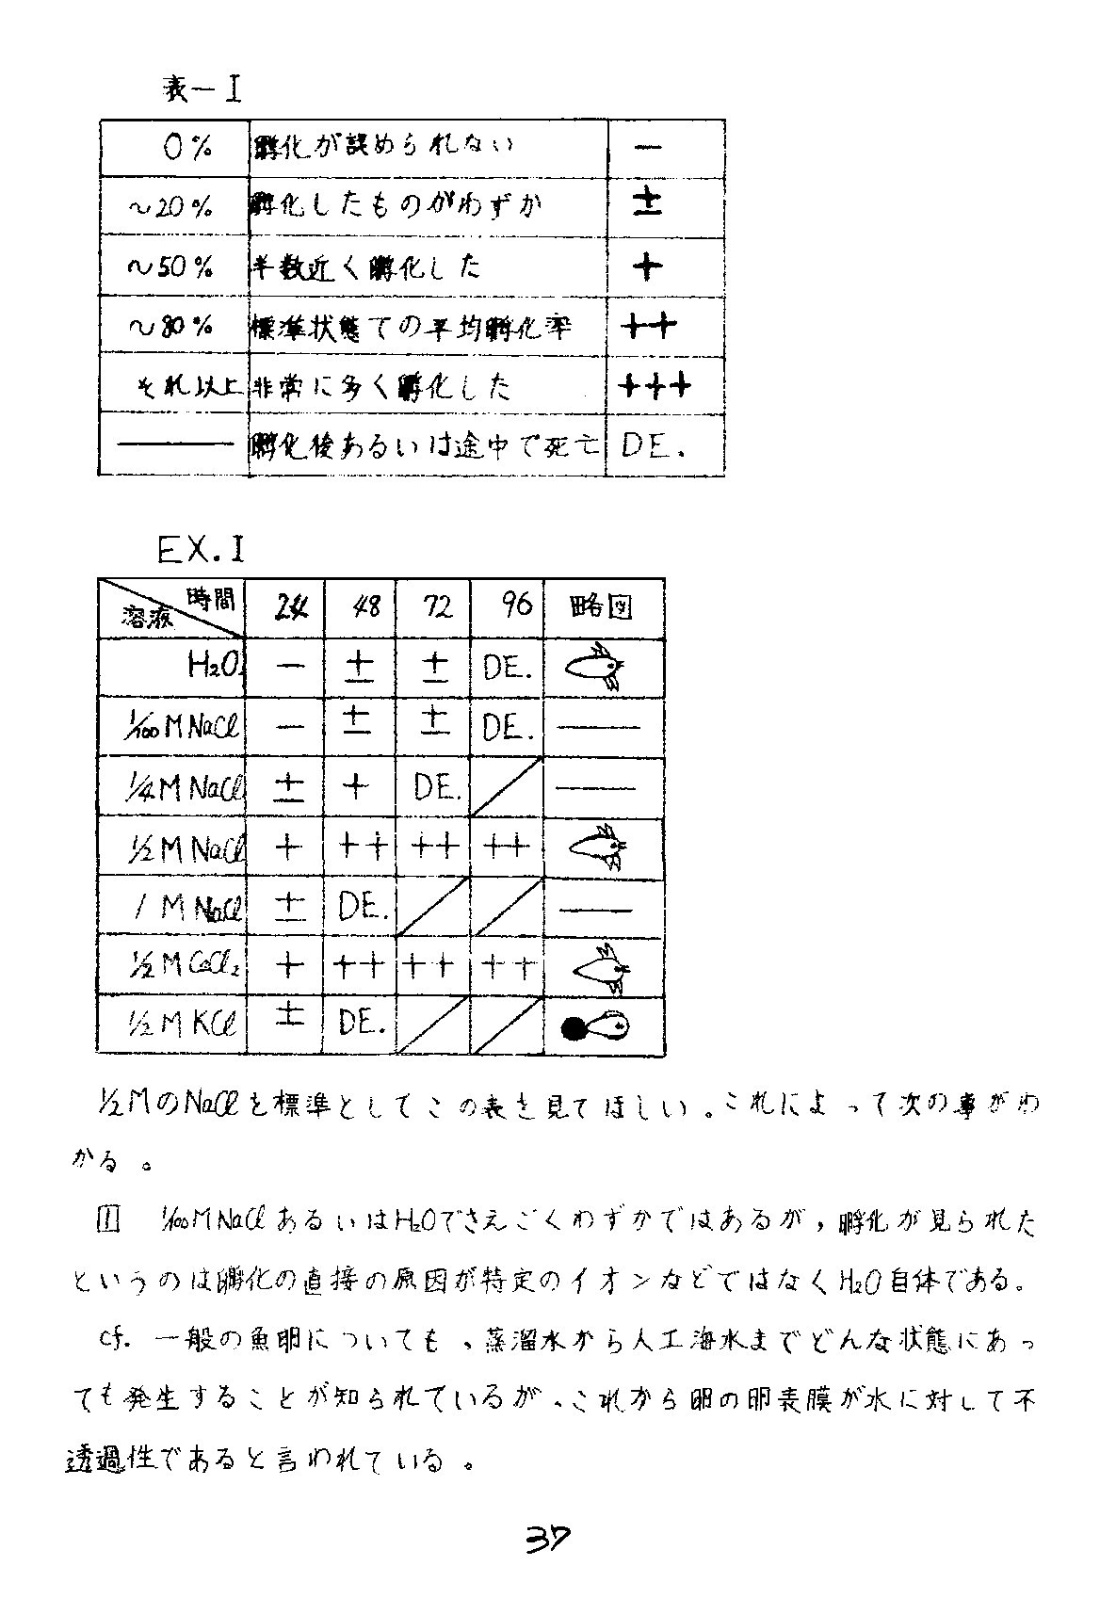 表－I
0% 孵化が認められない －
～20% 孵化したものがわずか ±
～50% 半数近く孵化した +
～80% 標準状態での平均孵化率 ++
それ以上 非常に多く孵化した +++
――― 孵化後あるいは途中で死亡 DE.
EX.I
時間 溶液 24 48 72 96 略図
H₂O － ± ± DE.
1/100 M NaCl － ± ± DE. ―――
1/4 M NaCl ± + DE. ―――
1/2 M NaCl + ++ ++ ++
1 M NaCl ± DE. ―――
1/2 M CaCl₂ + ++ ++ ++
1/2 M KCl ± DE.
1/2MのNaClを標準としてこの表を見てほしい。これによって次の事がわ
かる。
1 1/100MNaClあるいはH₂Oでさえごくわずかではあるが,孵化が見られた
というのは孵化の直接の原因が特定のイオンなどではなくH₂O自体である。
cf. 一般の魚卵についても、蒸溜水から人工海水までどんな状態にあっ
ても発生することが知られているが、これから卵の卵表膜が水に対して不
透過性であると言われている。
37